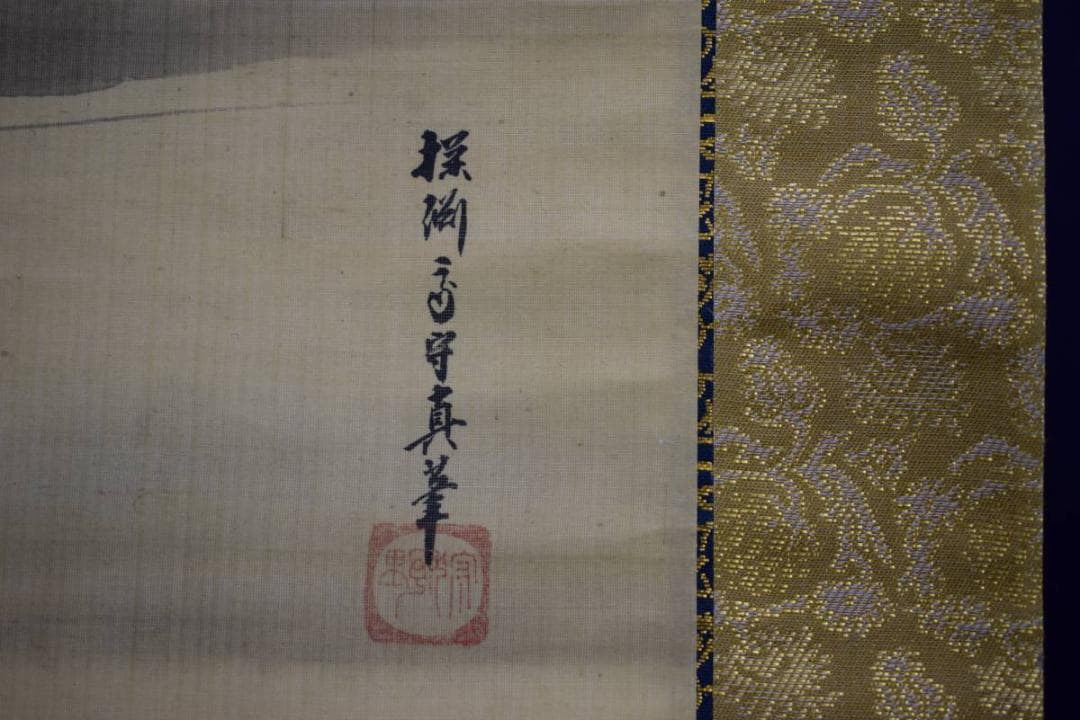 探渕斎守真筆